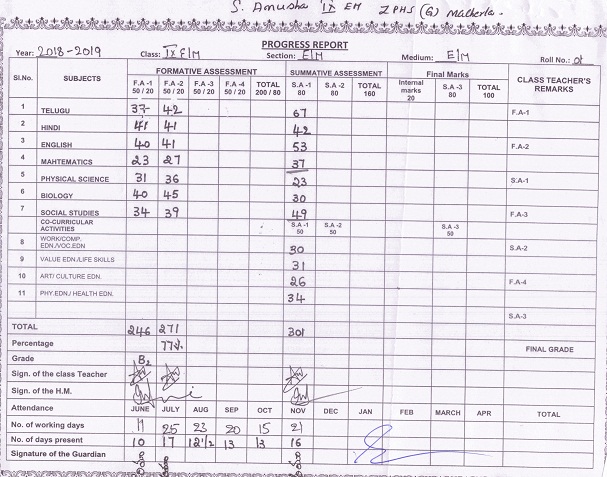 S. Anusha IX EM ZPHS (G) Malkerla.
PROGRESS REPORT
Year: 2018-2019 Class: IX E/M Section: E/M Medium: E/M Roll No.: 01
Sl.No. SUBJECTS FORMATIVE ASSESSMENT SUMMATIVE ASSESSMENT Final Marks CLASS TEACHER'S REMARKS
F.A -1 50 / 20 F.A -2 50 / 20 F.A -3 50 / 20 F.A -4 50 / 20 TOTAL 200 / 80 S.A -1 80 S.A -2 80 TOTAL 160 Internal marks 20 S.A -3 80 TOTAL 100
1 TELUGU 37 42 67 F.A-1
2 HINDI 41 41 42
3 ENGLISH 40 41 53 F.A-2
4 MAHTEMATICS 23 27 37
5 PHYSICAL SCIENCE 31 36 23 S.A-1
6 BIOLOGY 40 45 30
7 SOCIAL STUDIES 34 39 49 F.A-3
CO-CURRICULAR ACTIVITIES S.A -1 50 S.A -2 50 S.A -3 50
8 WORK/COMP. EDN./VOC.EDN 30 S.A-2
9 VALUE EDN./LIFE SKILLS 31
10 ART/ CULTURE EDN. 26 F.A-4
11 PHY.EDN./ HEALTH EDN. 34
S.A-3
TOTAL 246 271 301
Percentage 77%. FINAL GRADE
Grade B2
Sign. of the class Teacher
Sign. of the H.M.
Attendance JUNE JULY AUG SEP OCT NOV DEC JAN FEB MARCH APR TOTAL
No. of working days 11 25 23 20 15 21
No. of days present 10 17 12 1/2 13 13 16
Signature of the Guardian